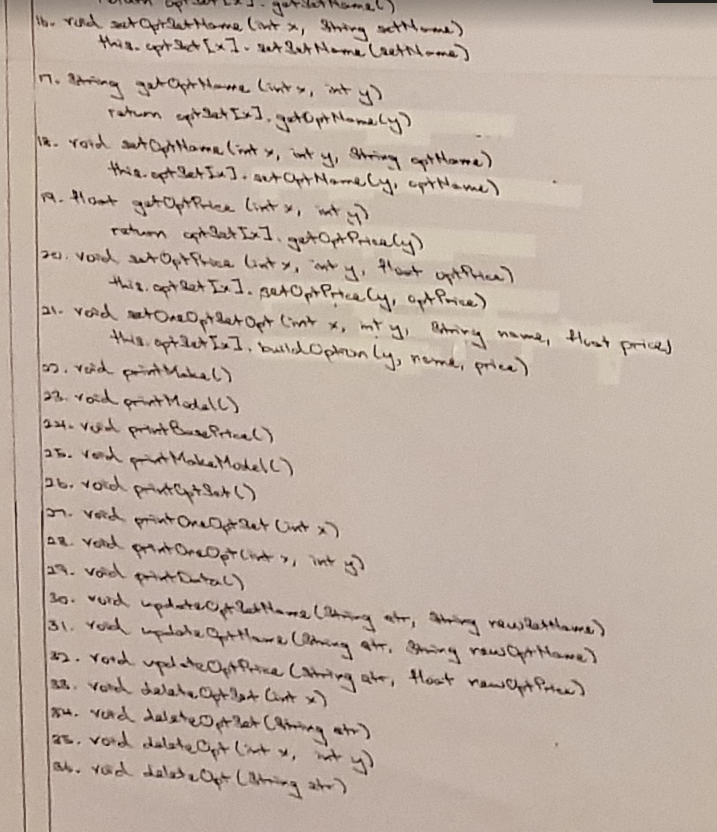 return optSet[x].getSetName()
16. void setOptSetName (int x, String setName)
this.optSet[x].setSetName(setName)
17. String getOptName (int x, int y)
return optSet[x].getOptName(y)
18. void setOptName (int x, int y, String optName)
this.optSet[x].setOptName(y, optName)
19. float getOptPrice (int x, int y)
return optSet[x].getOptPrice(y)
20. void setOptPrice (int x, int y, float optPrice)
this.optSet[x].setOptPrice(y, optPrice)
21. void setOneOptSetOpt (int x, int y, String name, float price)
this.optSet[x].buildOption(y, name, price)
22. void printMake()
23. void printModel()
24. void printBasePrice()
25. void printMakeModel()
26. void printOptSet()
27. void printOneOptSet (int x)
28. void printOneOpt (int x, int y)
29. void printData()
30. void updateOptSetName (String str, String newSetName)
31. void updateOptName (String str, String newOptName)
32. void updateOptPrice (String str, float newOptPrice)
33. void deleteOptSet (int x)
34. void deleteOptSet (String str)
35. void deleteOpt (int x, int y)
36. void deleteOpt (String str)